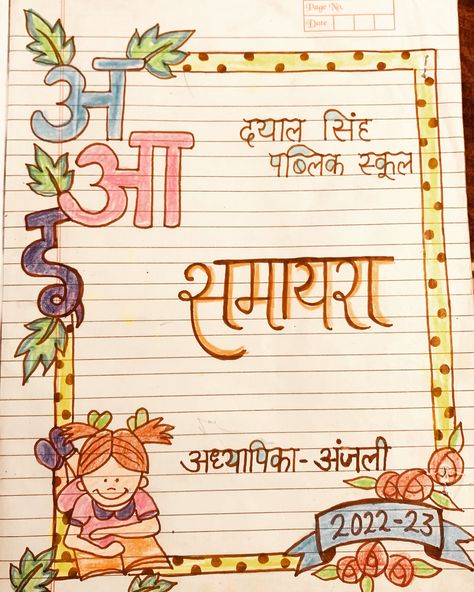 Page No.
Date
अ
आ
इ
दयाल सिंह
पब्लिक स्कूल
समायरा
अध्यापिका- अंजली
2022-23